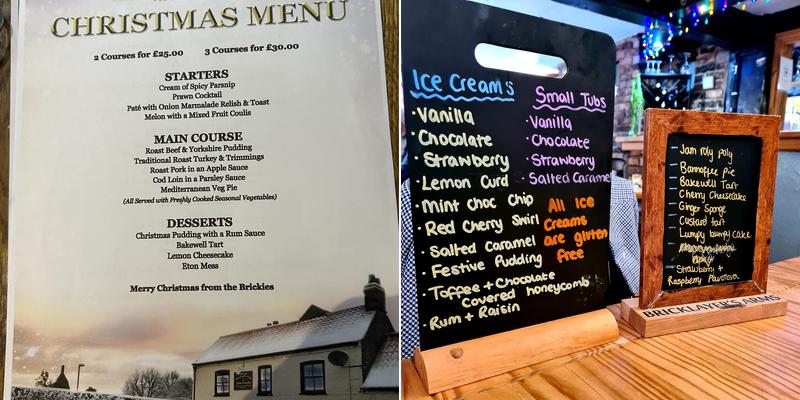 CHRISTMAS MENU
2 Courses for £25.00 3 Courses for £30.00
STARTERS
Cream of Spicy Parsnip
Prawn Cocktail
Paté with Onion Marmalade Relish & Toast
Melon with a Mixed Fruit Coulis
MAIN COURSE
Roast Beef & Yorkshire Pudding
Traditional Roast Turkey & Trimmings
Roast Pork in an Apple Sauce
Cod Loin in a Parsley Sauce
Mediterranean Veg Pie
(All Served with Freshly Cooked Seasonal Vegetables)
DESSERTS
Christmas Pudding with a Rum Sauce
Bakewell Tart
Lemon Cheesecake
Eton Mess
Merry Christmas from the Brickies
Ice Cream's
·Vanilla
·Chocolate
·Strawberry
·Lemon Curd
·Mint choc Chip
·Red Cherry Swirl
·Salted Caramel
·Festive Pudding
·Toffee + Chocolate
Covered honeycomb
·Rum + Raisin
Small Tubs
·Vanilla
·Chocolate
·Strawberry
·Salted Caramel
All Ice
Creams
are gluten
free
Jam roly poly
Bannoffee pie
Bakewell Tart
Cherry Cheesecake
Ginger Sponge
Custard tart
Lumpy bumpy cake
Strawberry +
Raspberry Pavlova
BRICKLAYER'S ARMS